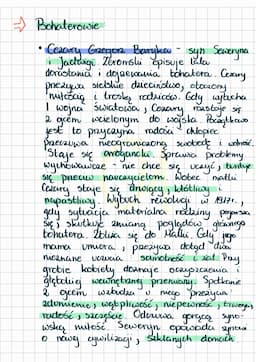 ⇒ Bohaterowie
• Cezary Grzegorz Baryka - syn Seweryna
i Jadwigi. Żeromski opisuje lata
dorastania i dojrzewania bohatera. Cezary
przeżywa sielskie dzieciństwo, otoczony
miłością i troską rodziców. Gdy wybucha
I wojna światowa, Cezary rozstaje się
z ojcem wcielonym do wojska. Początkowo
jest to przyczyna radości chłopiec
przeżywa nieograniczoną swobodę i wolność.
Staje się arogancki. Sprawia problemy
wychowawcze - nie chce się uczyć, buntuje
się przeciw nauczycielom. Wobec matki
Cezary staje się drwiący, kłótliwy
napastliwy. Wybuch rewolucji w 1917r.,
gdy sytuacja materialna rodziny pogarsza
się, skutkuje zmianą poglądów głównego
bohatera. Zbliża się do Matki. Gdy jego
mama umiera, przeżywa dotąd dwa
nieznane uczucia samotność i żal. Przy
grobie kobiety doznaje oczyszczenia i
głębokiej wewnętrznej przemiany. Spotkanie
z ojcem wzbudza u niego przeżycia
zdumienie, wątpliwość, niepewność,
radość, szczęście. Odżywa gorącą syno-
wską miłość. Seweryn opowiada synowi
o nowej cywilizacji, szklanych domach